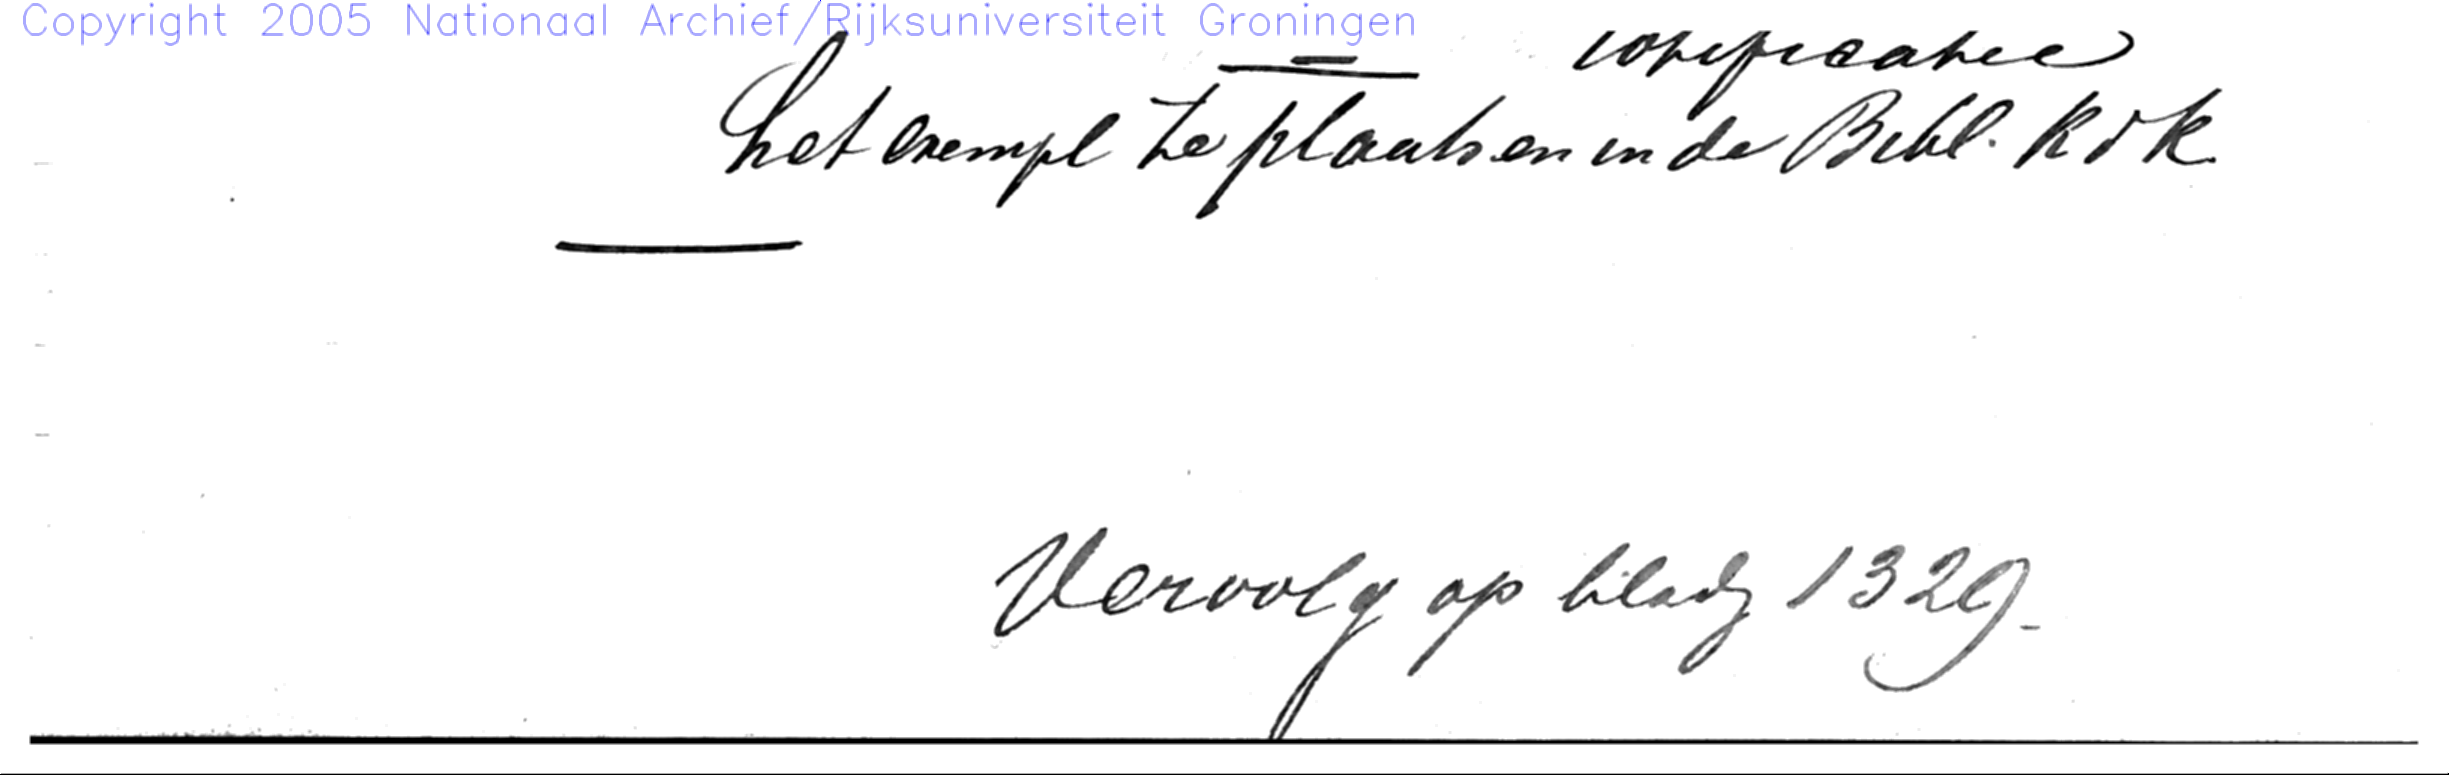 Copyright 2005 Nationaal Archief/Rijksuniversiteit Groningen
het exempl te plaatsen in de Bibl. K d K.
Vervolg op bladz 1329-